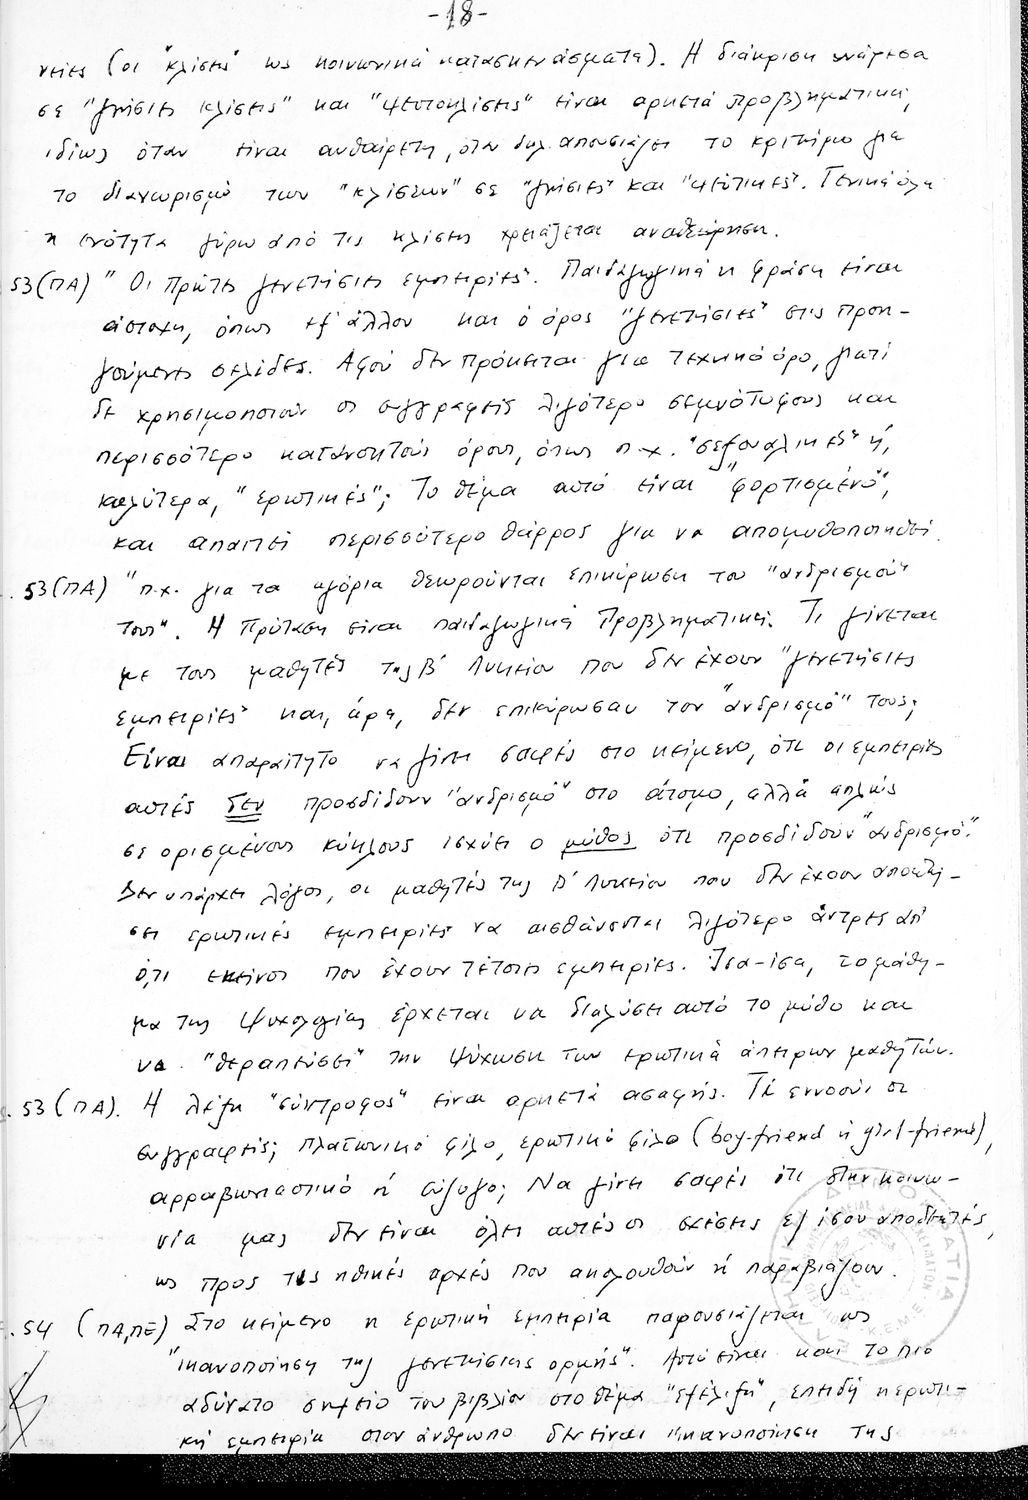 -18-
νειες (οι "κλίσεις" ως κοινωνικά κατασκευάσματα). Η διάκριση ανάμεσα
σε "γνήσιες κλίσεις" και "ψευτοκλίσεις" είναι αρκετά προβληματική,
ιδίως όταν είναι αυθαίρετη, όταν δηλ. απουσιάζει το κριτήριο για
το διαχωρισμό των "κλίσεων" σε "γνήσιες" και "ψεύτικες". Γενικά όλη
η ενότητα γύρω από τις κλίσεις χρειάζεται αναθεώρηση.
53 (ΠΑ) "Οι πρώτες γενετήσιες εμπειρίες". Παιδαγωγικά η φράση είναι
άστοχη, όπως εξ' άλλου και ο όρος "γενετήσιες" στις προη-
γούμενες σελίδες. Αφού δεν πρόκειται για τεχνικό όρο, γιατί
δε χρησιμοποιούν οι συγγραφείς λιγότερο σεμνότυφους και
περισσότερο κατανοητούς όρους, όπως π.χ. "σεξουαλικές" ή,
καλύτερα, "ερωτικές"; Το θέμα αυτό είναι "φορτισμένο",
και απαιτεί περισσότερο θάρρος για να απομυθοποιηθεί.
53 (ΠΑ) "π.χ. για τα αγόρια θεωρούνται επικύρωση του "ανδρισμού"
τους". Η πρόταση είναι παιδαγωγικά προβληματική. Τι γίνεται
με τους μαθητές της Β' Λυκείου που δεν έχουν "γενετήσιες
εμπειρίες" και, άρα, δεν επικύρωσαν τον "ανδρισμό" τους;
Είναι απαραίτητο να γίνει σαφές στο κείμενο, ότι οι εμπειρίες
αυτές δεν προσδίδουν "ανδρισμό" στο άτομο, αλλά απλώς
σε ορισμένους κύκλους ισχύει ο μύθος ότι προσδίδουν "ανδρισμό."
Δεν υπάρχει λόγος, οι μαθητές της Β' Λυκείου που δεν έχουν αποκτή-
σει ερωτικές εμπειρίες να αισθάνονται λιγότερο άντρες απ'
ό,τι εκείνοι που έχουν τέτοιες εμπειρίες. Ίσα-ίσα, το μάθη-
μα της Ψυχολογίας έρχεται να διαλύσει αυτό το μύθο και
να "θεραπεύσει" την ψύχωση των ερωτικά άπειρων μαθητών.
53 (ΠΑ). Η λέξη "σύντροφος" είναι αρκετά ασαφής. Τί εννοούν οι
συγγραφείς; πλατωνικό φίλο, ερωτικό φίλο (boy-friend ή girl-friend),
αρραβωνιαστικό ή σύζυγο; Να γίνει σαφές ότι στην κοινω-
νία μας δεν είναι όλες αυτές οι σχέσεις εξ ίσου αποδεκτές,
ως προς τις ηθικές αρχές που ακολουθούν ή παραβιάζουν.
54 (ΠΑ,ΠΕ) Στο κείμενο η ερωτική εμπειρία παρουσιάζεται ως
"ικανοποίηση της γενετήσιας ορμής". Αυτό είναι και το πιο
αδύνατο σημείο του βιβλίου στο θέμα "εξέλιξη", επειδή η ερωτι-
κή εμπειρία στον άνθρωπο δεν είναι ικανοποίηση της